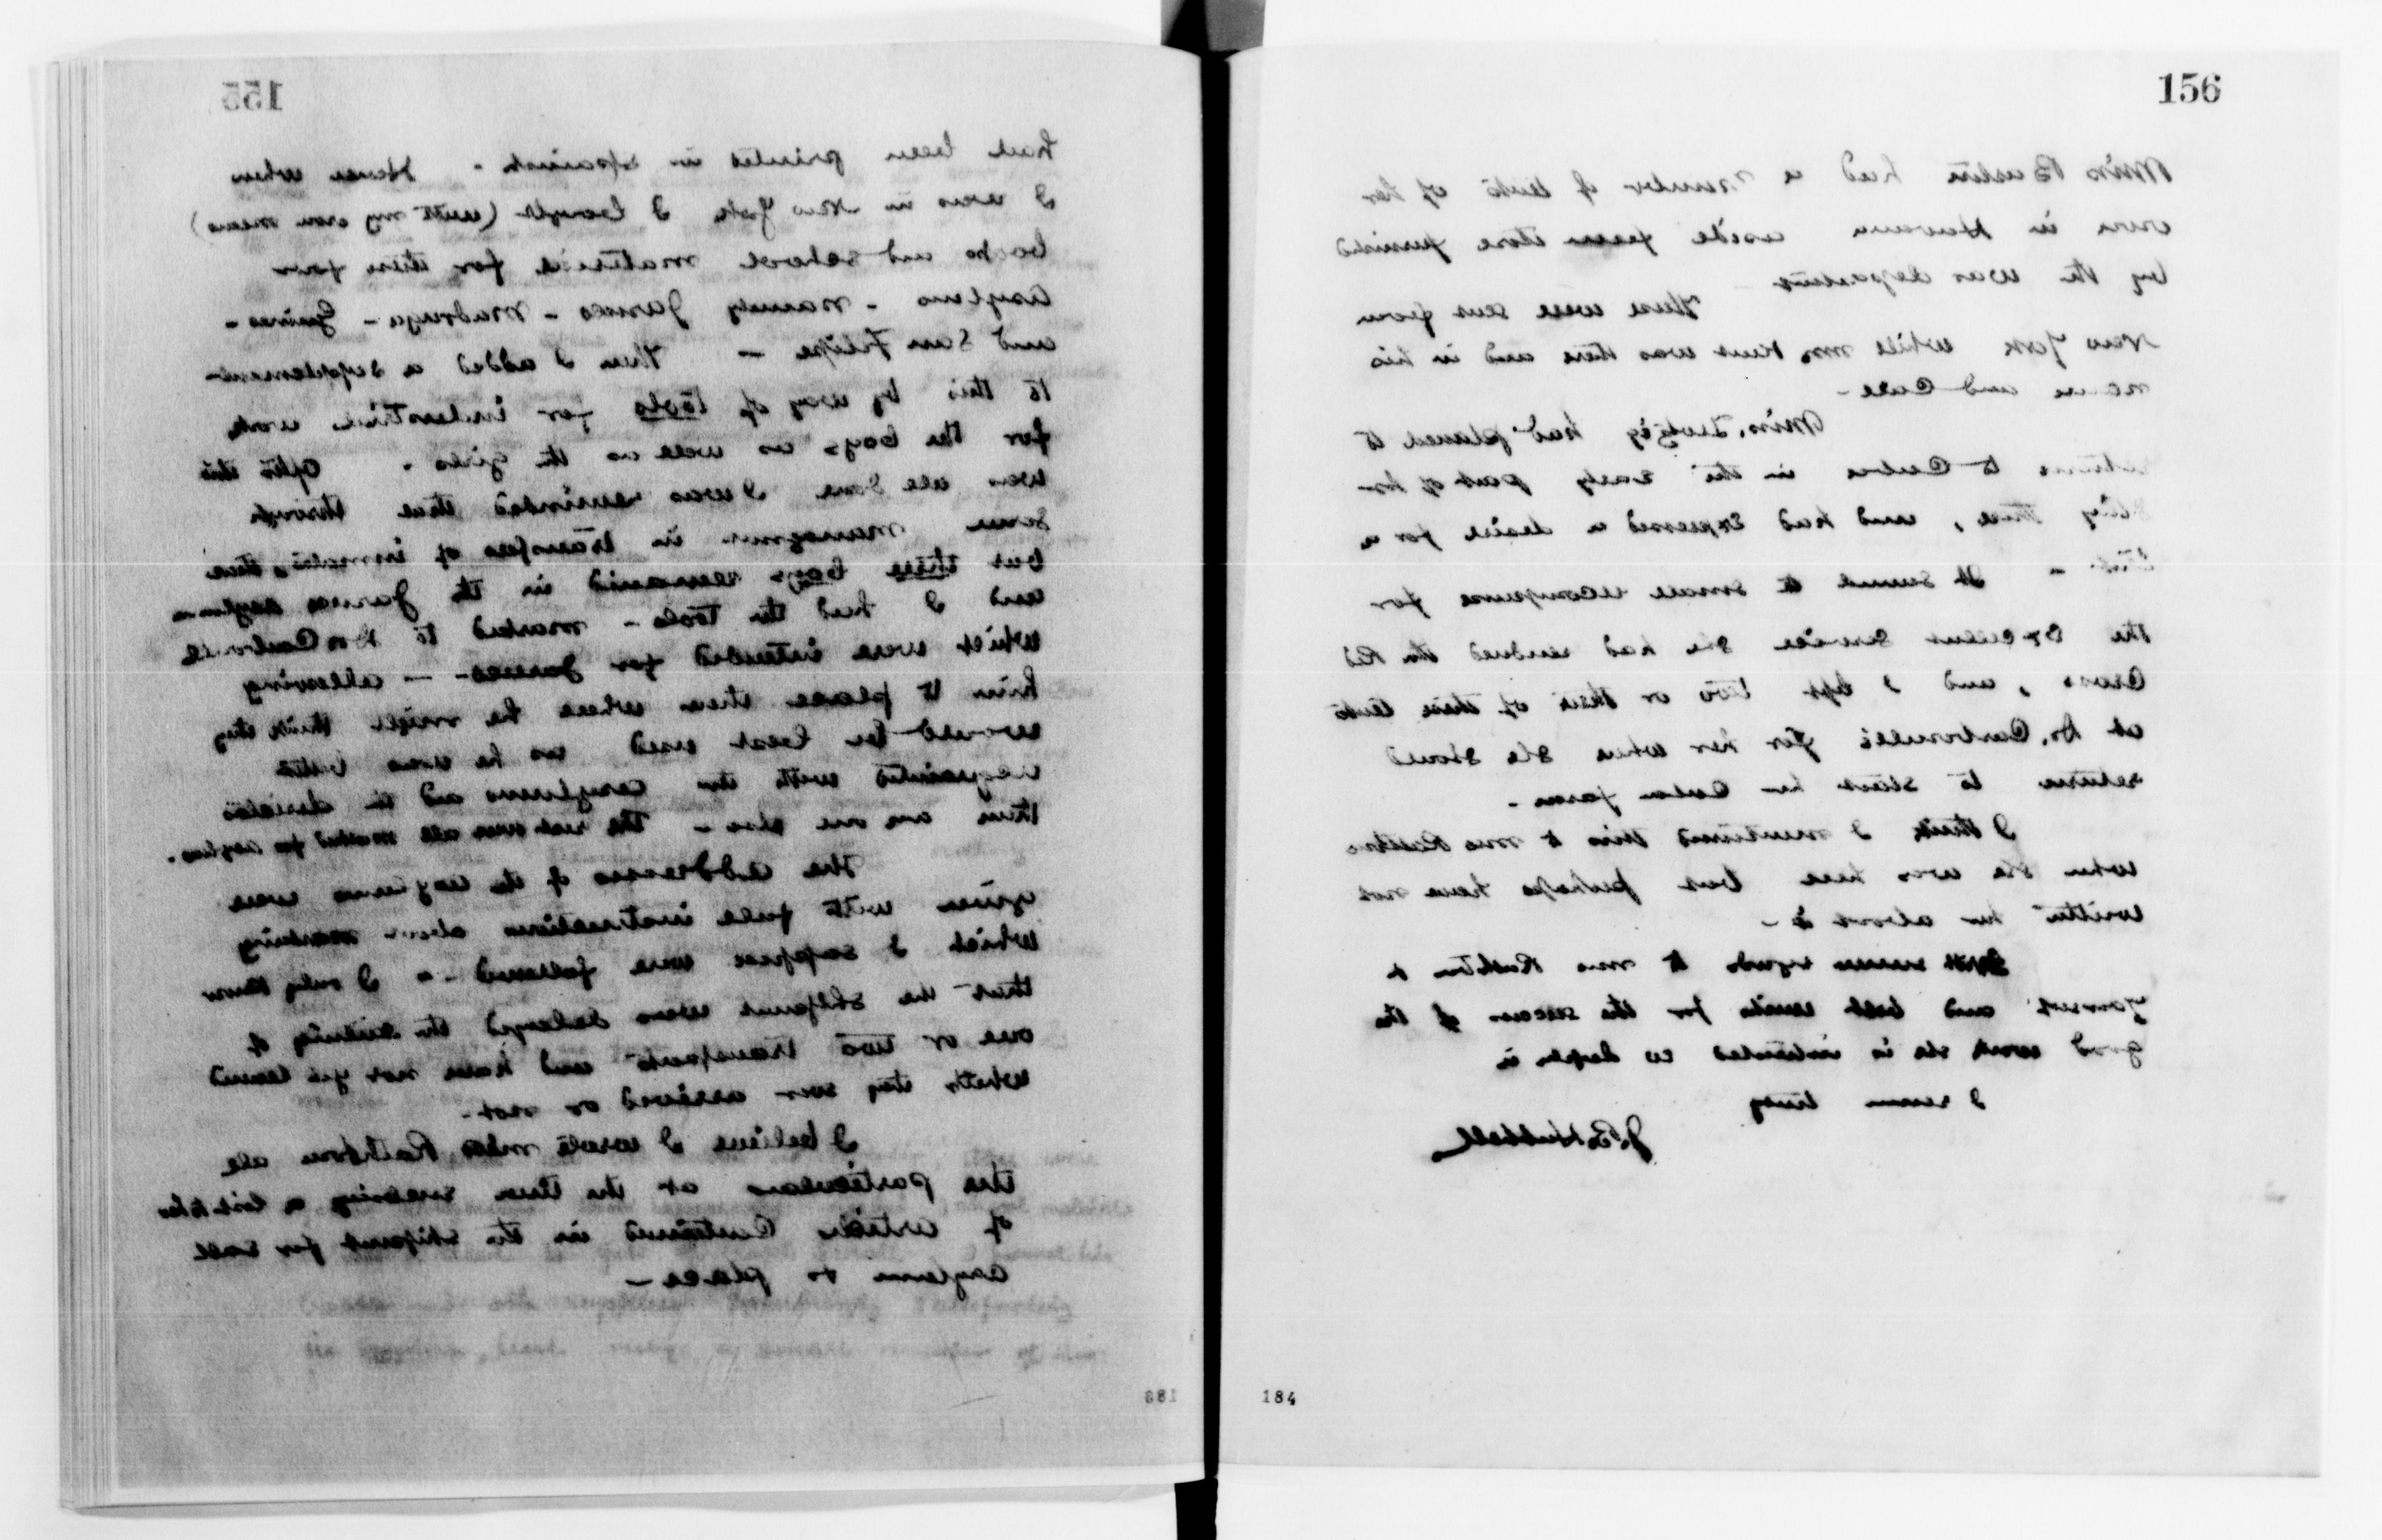 155
have been printed in Spanish - Hence when
I was in New York I bought (with my own means)
books and school material for these four
asylums - namely Jaruco - Madruga - Guines -
and San Filipe - Then I added a supplement
to this by way of tools for industrial work
for the boys as well as the girls - After this
was all done I was reminded that through
some in transfers of inmates, that
but three boys remained in the Jaruco asylum
and I had the tools - marked to Dr Carbonell
which were intended for Jaruco - allowing
him to place them where he might think they
would be best used as he was better
acquainted with the asylums and the
than any one else - The rest was all marked for asylums.
The addresses of the asylums were
given with full instructions about marking
which I suppose were followed - I only know
that the shipment was delayed the sailing of
one or two transports and have not yet learned
whether they ever arrived or not -
I believe I wrote Miss Rathbone all
the particulars at the time sending a list to her
of articles contained in the shipment for each
asylum or place -
183
156
Miss Barton had a number of tents of her
own in Havana aside from those furnished
by the war department
These were sent from
New York while Mr Kent was there and in his
name and care -
Miss. had planned to
return to Cuba in the early part of
, and had expressed a desire for a
tent - It seemed a small recompense for
the excellent service she had rendered the Red
Cross, and I left two or three of these tents
at Dr. Carbonell's for her when she should
return to start her Cuban farm -
I think I mentioned this to Mrs Rathbone
when she was here but perhaps have not
written her about it -
With warm regards to Mrs Rathbone &
yourself and best wishes for the success of the
good work she is interested so deeply in
I remain truly
J. B. Hubbell
184